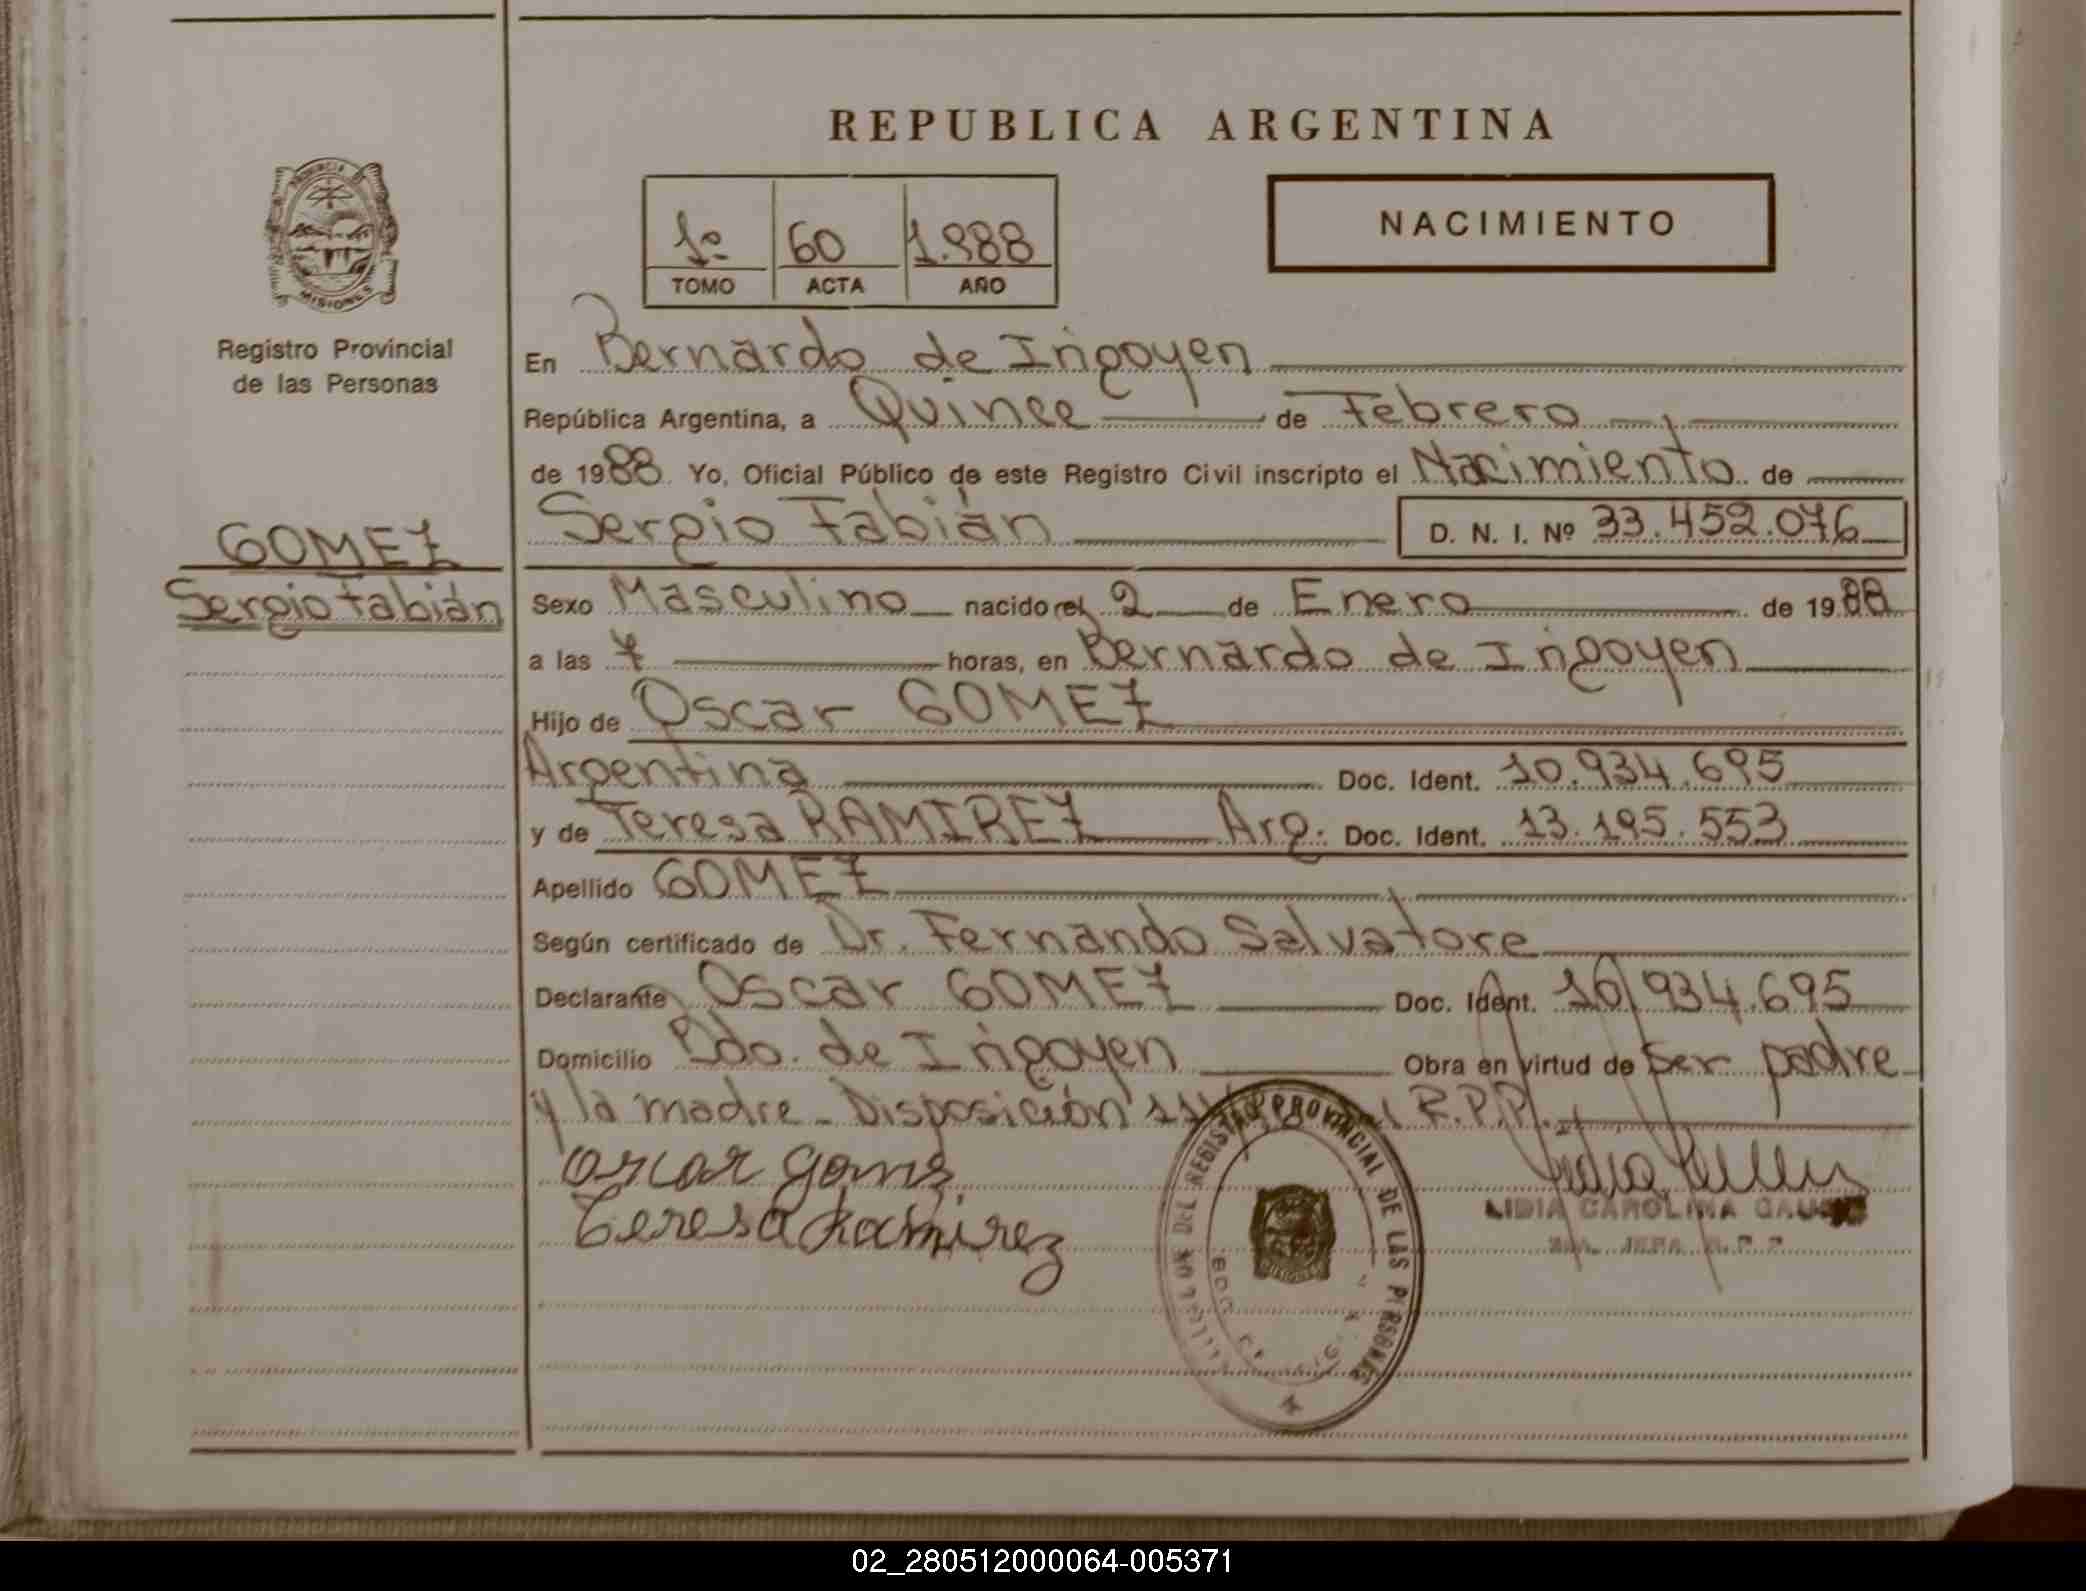 REPUBLICA ARGENTINA
PROVINCIA DE
MISIONES
Registro Provincial
de las Personas
1º 60 1.988
TOMO ACTA AÑO
NACIMIENTO
En Bernardo de Irigoyen
República Argentina, a Quince de Febrero
de 1988 Yo, Oficial Público de este Registro Civil inscripto el Nacimiento de
GOMEZ
Sergio Fabián
Sergio Fabián D. N. I. Nº 33.452.076
Sexo Masculino nacido el 2 de Enero de 1988
a las 7 horas, en Bernardo de Irigoyen
Hijo de Oscar GOMEZ
Argentina Doc. Ident. 10.934.695
y de Teresa RAMIREZ Arg. Doc. Ident. 13.195.553
Apellido GOMEZ
Según certificado de Dr. Fernando Salvatore
Declarante Oscar GOMEZ Doc. Ident. 10.934.695
Domicilio Bdo. de Irigoyen Obra en virtud de ser padre
y la madre - Disposición R.P.P.
oscar gomez
Teresa Ramirez
DEL REGISTRO PROVINCIAL DE LAS PERSONAS
LIDIA CAROLINA
JEFA R.P.P.
02_280512000064-005371